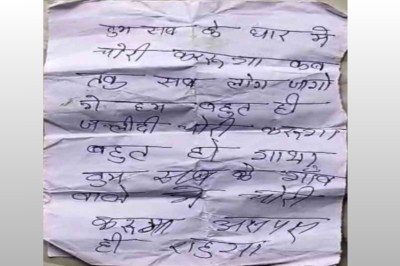 तुम सब के घार मे
चोरी करूगा कब
तक सब लोग जागो
गे हम बहुत ही
जल्दी चोरी करूगा
बहुत हो गाया
तुम सब के गाँव
वालो मे चोरी
करूगा आसपास
ही राहुगा